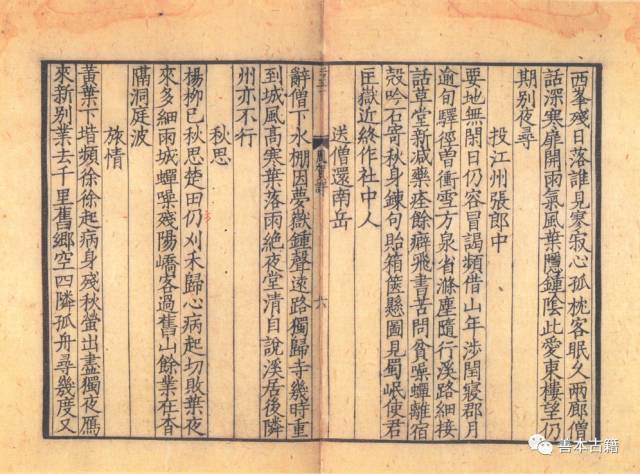 西峯殘日落誰見寂寥心孤枕客眠久兩廊僧
話深寒扉開雨氣風葉隱鍾陰此愛東樓望仍
期別夜尋
投江州張郎中
要地無閑日仍容冒謁頻借山年涉閏寢郡月
逾旬驛徑曽衝雪方泉省滌塵隨行溪路細接
話草堂新減藥痊餘癖飛書苦問貧噪蟬離宿
殼吟石寄秋身鍊句貽箱篋懸圖見蜀岷使君
匡嶽近終作社中人
送僧還南岳
辭僧下水棚因夢嶽鍾聲遠路獨歸寺幾時重
到城風高寒葉落雨絶夜堂清自說溪居後隣
州亦不行
秋思
楊柳已秋思楚田仍刈禾歸心病起切敗葉夜
來多細雨城蟬噪殘陽嶠客過舊山餘業在杳
隔洞庭波
旅情
黃葉下堦頻徐徐起病身殘秋螢出盡獨夜鴈
來新別業去千里舊鄉空四隣孤舟尋幾度又
六
善本古籍